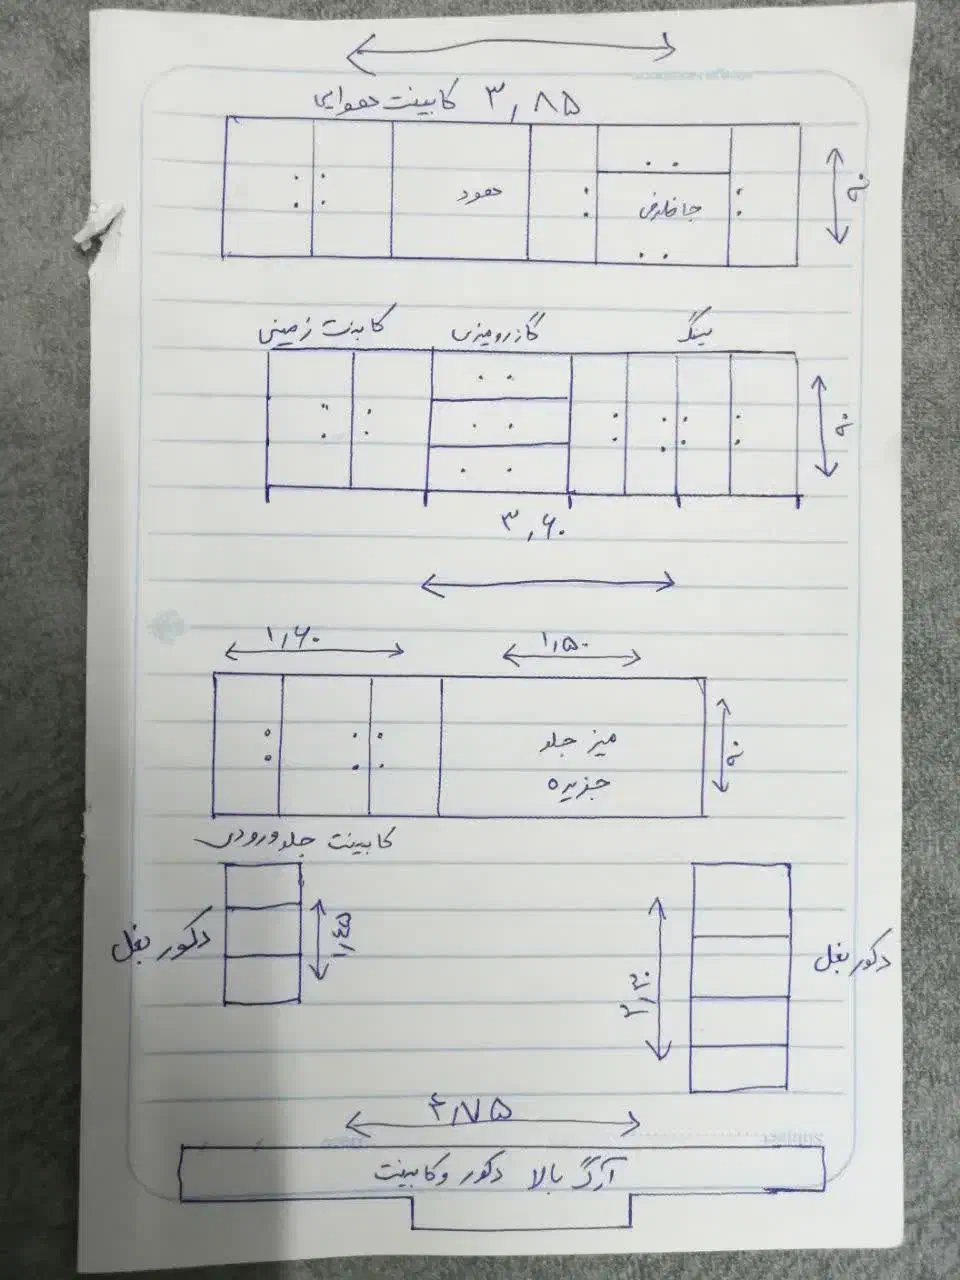 کابینت هوایی ۳,۸۵
هود
جا ظرفی
۹۰
کابنت زمینی
گاز رومیزی
سینگ
۹۰
۳,۶۰
۱,۶۰
۱,۵۰
میز جلو
جزیره
۹۰
کابینت جلو ورودی
دکور بغل
۱,۴۵
دکور بغل
۴,۷۵
آرگ بالا دکور و کابینت